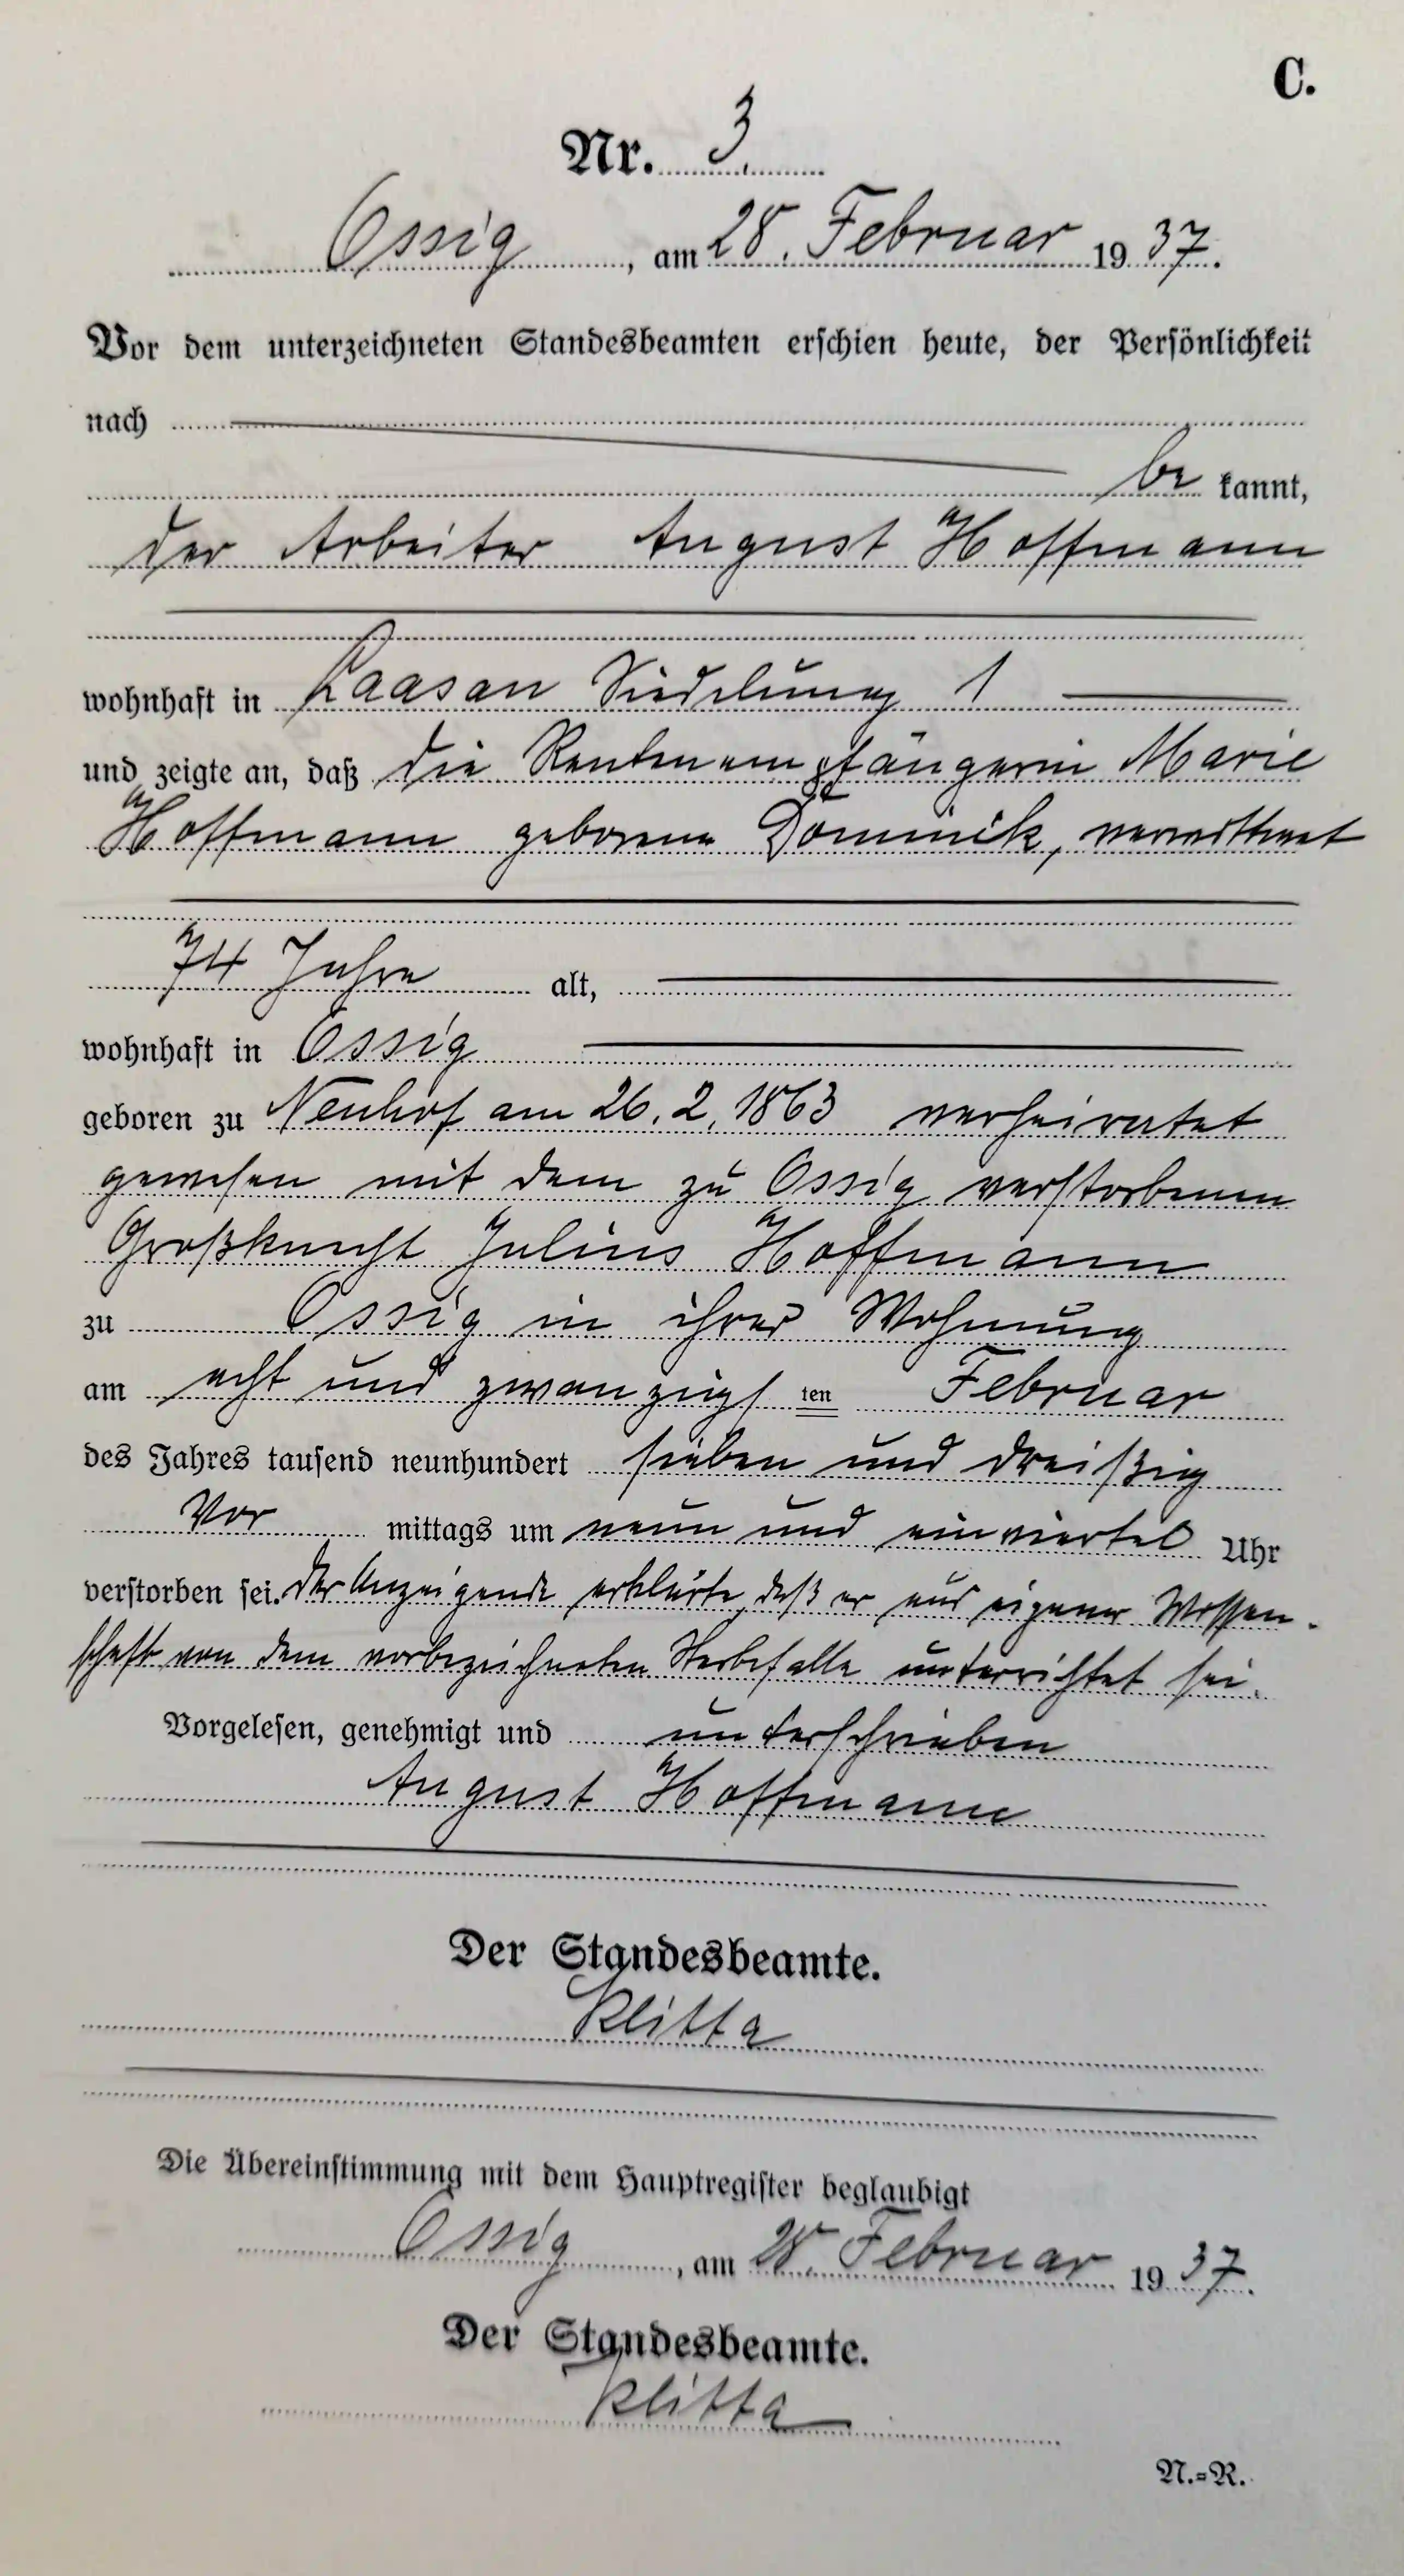 C.
Nr. 3.
Ossig, am 28. Februar 1937.
Vor dem unterzeichneten Standesbeamten erschien heute, der Persönlichkeit
nach
be kannt,
der Arbeiter August Hoffmann
wohnhaft in Laasan Siedelung 1
und zeigte an, daß die Rentenempfängerin Marie
Hoffmann geborene Dominik, verwittwet
74 Jahre alt,
wohnhaft in Ossig
geboren zu Neuhof am 26. 2. 1863 verheiratet
gewesen mit dem zu Ossig verstorbenen
Großknecht Julius Hoffmann
zu Ossig in ihrer Wohnung
am acht und zwanzigsten Februar
des Jahres tausend neunhundert sieben und dreißig
Vor mittags um neun und einviertel Uhr
verstorben sei. Der Anzeigende erklärte, daß er aus eigener Wissen-
schaft von dem vorbezeichneten Sterbefalle unterrichtet sei.
Vorgelesen, genehmigt und unterschrieben
August Hoffmann
Der Standesbeamte.
Klitta
Die Übereinstimmung mit dem Hauptregister beglaubigt
Ossig, am 28. Februar 1937.
Der Standesbeamte.
Klitta
N.=R.